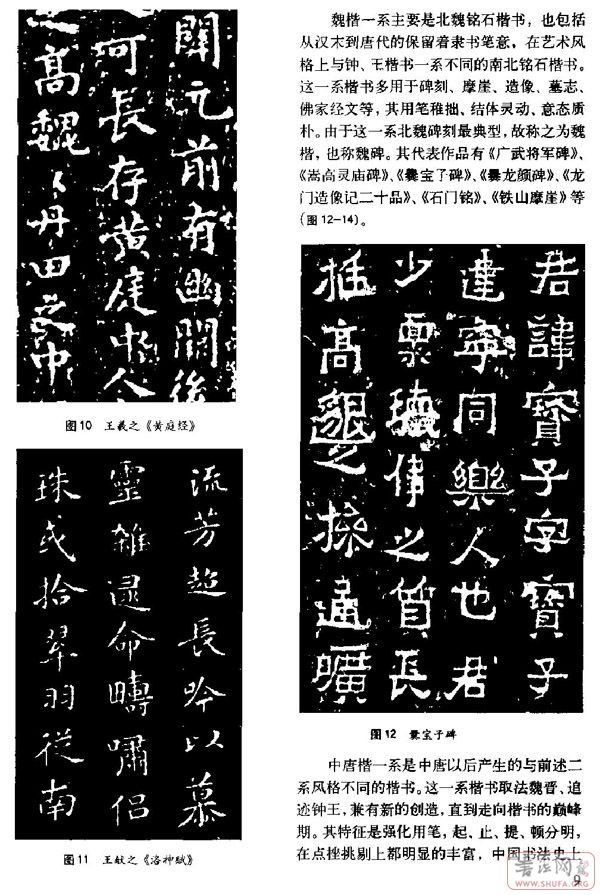 關元前有幽闕後
可長存黃庭中人
之高魏〻丹田之中
图10 王羲之《黄庭经》
流芳超長吟以慕
靈雜遝命疇嘯侶
珠或拾翠羽從南
图11 王献之《洛神赋》
魏楷一系主要是北魏铭石楷书，也包括
从汉末到唐代的保留着隶书笔意，在艺术风
格上与钟、王楷书一系不同的南北铭石楷书。
这一系楷书多用于碑刻、摩崖、造像、墓志、
佛家经文等，其用笔稚拙、结体灵动、意态质
朴。由于这一系北魏碑刻最典型，故称之为魏
楷，也称魏碑。其代表作品有《广武将军碑》、
《嵩高灵庙碑》、《爨宝子碑》、《爨龙颜碑》、《龙
门造像记二十品》、《石门铭》、《铁山摩崖》等
（图12—14）。
君諱寶子字寶子
建寧同樂人也君
少稟瓌偉之質長
挺高邈之操通曠
图12 爨宝子碑
中唐楷一系是中唐以后产生的与前述二
系风格不同的楷书。这一系楷书取法魏晋、追
迹钟王，兼有新的创造，直到走向楷书的巅峰
期。其特征是强化用笔，起、止、提、顿分明，
在点挫挑剔上都明显的丰富，中国书法史上
9
书法网
www.SHUFA.ORG